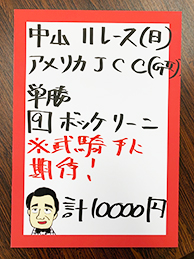 中山 11レース(日)
アメリカJCC(GⅡ)
単勝
9 ボッケリーニ
※武騎手に
期待!
計10000円